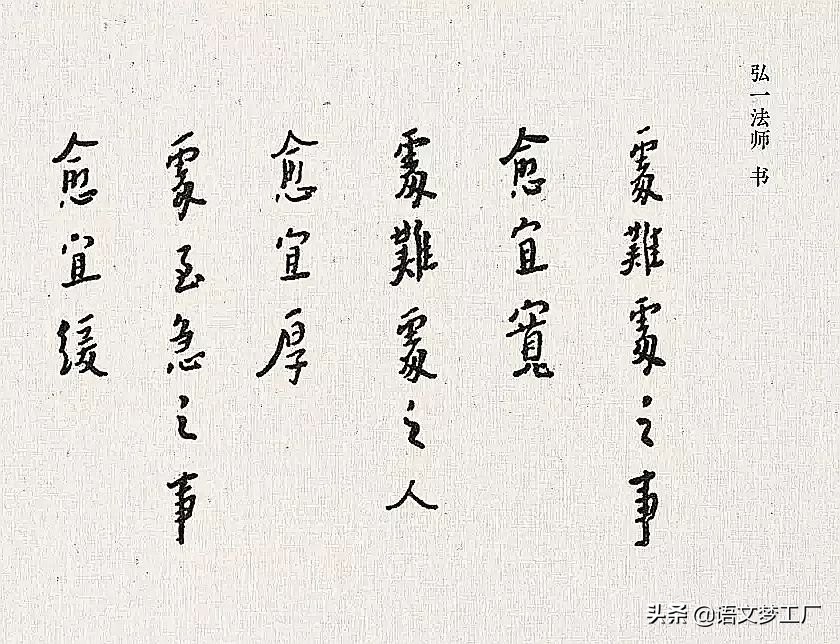 弘一法师 书
處難處之事
愈宜寬
處難處之人
愈宜厚
處至急之事
愈宜緩
头条 @语文梦工厂